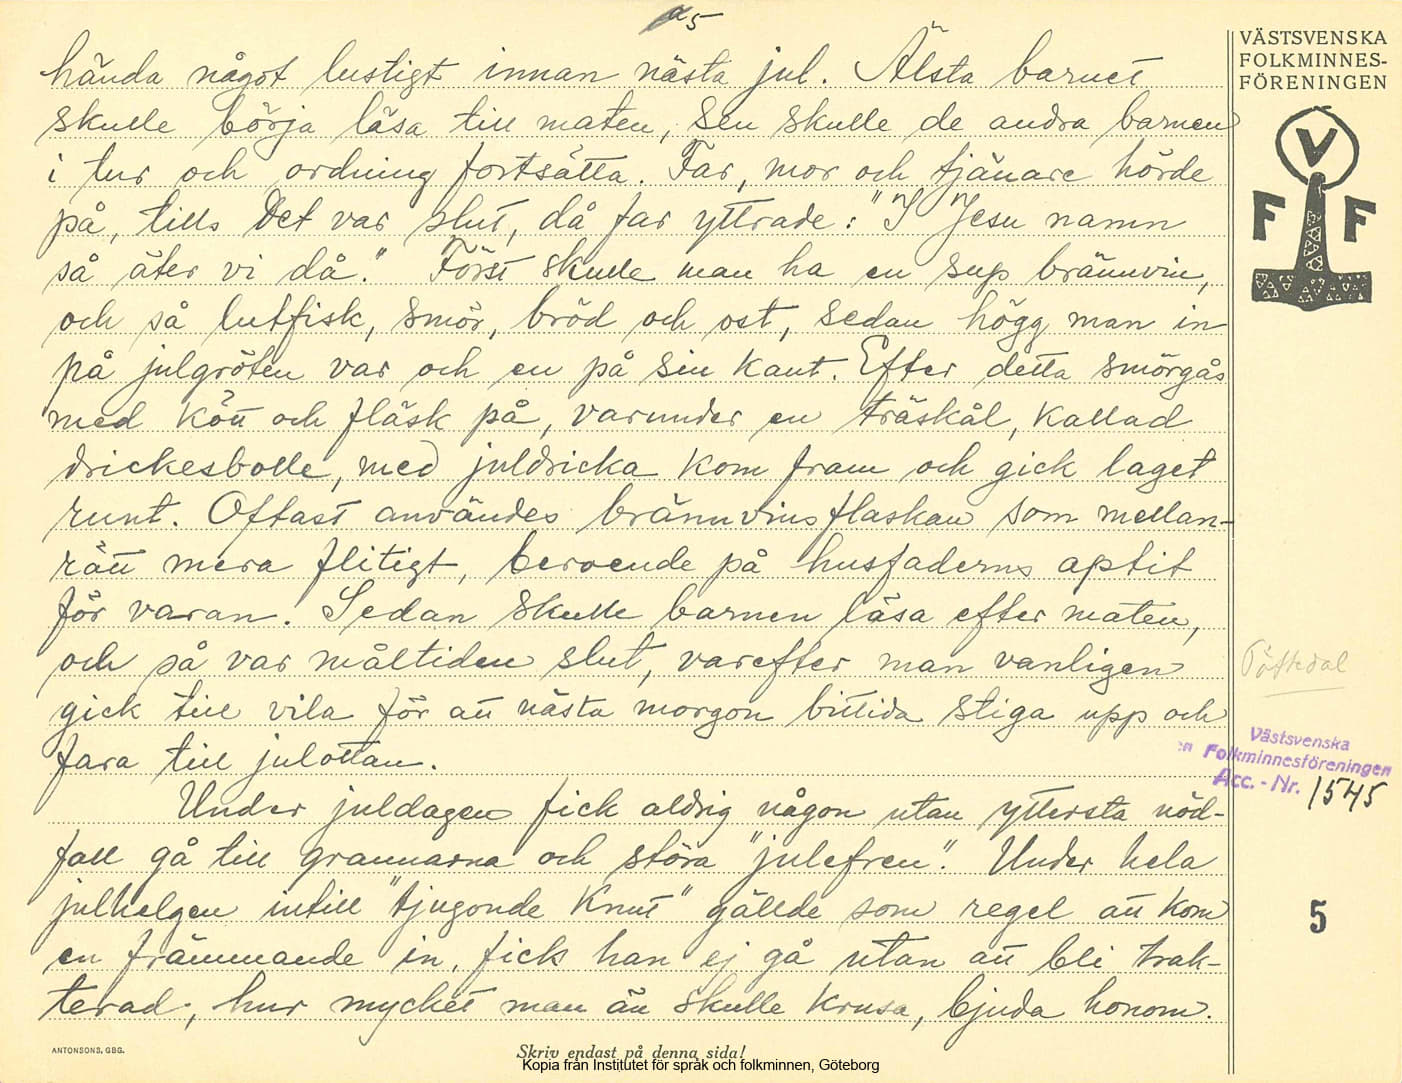 5
hända något lustigt innan nästa jul. Älsta barnet
skulle börja läsa till maten, sen skulle de andra barnen
i tur och ordning fortsätta. Far, mor och tjänare hörde
på, tills det var slut, då far yttrade: "I Jesu namn
så äter vi då." Först skulle man ha en sup brännvin,
och så lutfisk, smör, bröd och ost, sedan högg man in
på julgröten var och en på sin kant. Efter detta smörgås
med kött och fläsk på, varunder en träskål, kallad
drickesbolle, med juldricka kom fram och gick laget
runt. Oftast användes brännvinsflaskan som mellan-
rätt mera flitigt, beroende på husfaderns aptit
för varan. Sedan skulle barnen läsa efter maten,
och så var måltiden slut, varefter man vanligen
gick till vila för att nästa morgon bittida stiga upp och
fara till julottan.
Under juldagen fick aldrig någon utan yttersta nöd-
fall gå till grannarna och störa "julefren". Under hela
julhelgen intill "tjugonde Knut" gällde som regel att kom
en främmande in, fick han ej gå utan att bli trak-
terad, hur mycket man än skulle krusa, bjuda honom.
VÄSTSVENSKA
FOLKMINNES-
FÖRENINGEN
V
F F
Västsvenska
Folkminnesföreningen
Acc.-Nr. 1545
5
ANTONSONS, GBG.
Skriv endast på denna sida!
Kopia från Institutet för språk och folkminnen, Göteborg